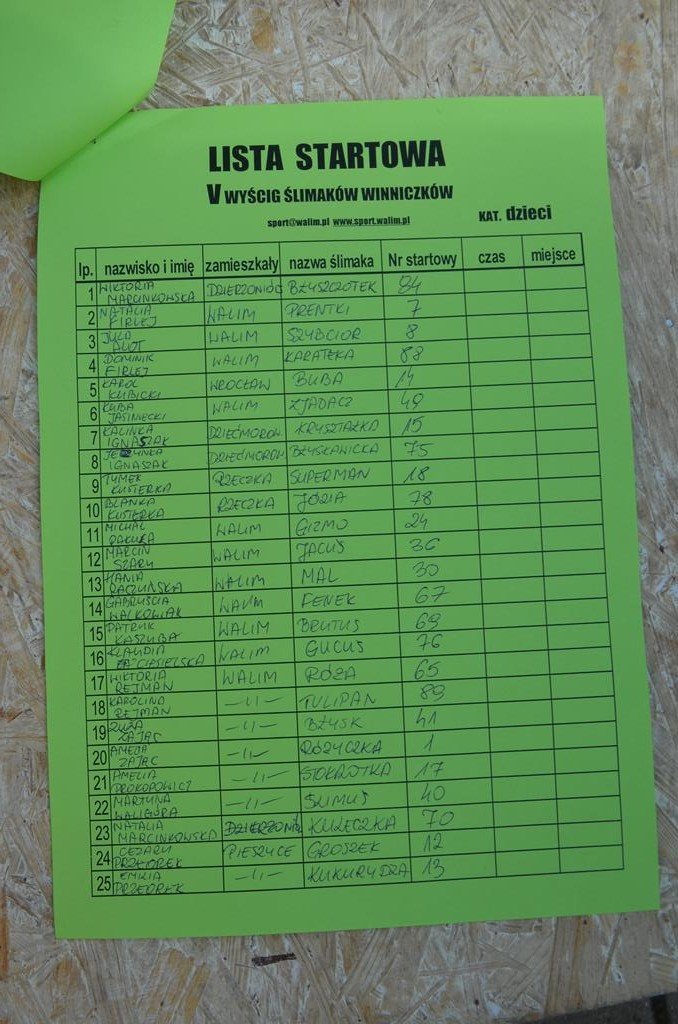 LISTA STARTOWA
V WYŚCIG ŚLIMAKÓW WINNICZKÓW
sport@walim.pl www.sport.walim.pl
KAT. dzieci
lp. nazwisko i imię zamieszkały nazwa ślimaka Nr startowy czas miejsce
1 WIKTORIA MARCINKOWSKA DZIERŻONIÓ BŁYSZCZOTEK 84
2 NATALIA FIRLEJ WALIM PRENTKI 7
3 JULA WALIM SZYBCIOR 8
4 DOMINIK FIRLEJ WALIM KARATEKA 88
5 KAROL KUBICKI WROCŁAW BUBA 14
6 KUBA JASINECKI WALIM ZJADACZ 49
7 KALINKA IGNASZAK DZIEĆMOROW KRYSZTAŁKO 15
8 IGNASZAK DZIEĆMOROW BŁYSKAWICKA 75
9 TYMEK KUSIERKA RZECZKA SUPERMAN 18
10 BLANKA KUSIERKA RZECZKA JÓZIA 78
11 MICHAŁ WALIM GIZMO 24
12 MARCIN SZARY WALIM JACUŚ 36
13 HANIA RACZUŃSKA WALIM MAL 30
14 GABRYSIA WALKOWIAK WALIM FENEK 67
15 PATRYK KASZUBA WALIM BRUTUS 69
16 KLAUDIA CIESIELSKA WALIM GUCUŚ 76
17 WIKTORIA REJMAN WALIM RÓŻA 65
18 KAROLINA REJMAN —11— TULIPAN 89
19 ZUZA ZAJĄC —11— BŁYSK 41
20 AMELIA ZAJĄC —11— RÓŻYCZKA 1
21 AMELIA PROKOPOWICZ —11— STOKROTKA 17
22 MARTYNA WALIGÓRA —11— ŚLIMUŚ 40
23 NATALIA MARCINKOWSKA DZIERŻONIÓ KULECZKA 70
24 CEZARY PRZEOREK PIESZYCE GROSZEK 12
25 EMILIA PRZEOREK —11— KUKURYDZA 13